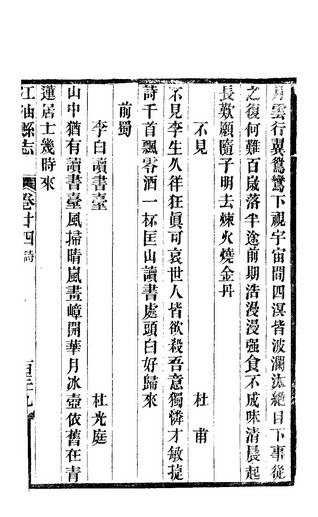 月雲行翼鴛鸞下視宇宙間四溟皆波瀾汰絕目下事從
之復何難百歲落半途前期浩漫漫强食不成味清晨起
長歎願隨子明去煉火燒金丹
不見 杜甫
不見李生久佯狂眞可哀世人皆欲殺吾意獨憐才敏捷
詩千首飄零酒一杯匡山讀書處頭白好歸來
前蜀
李白讀書臺 杜光庭
山中猶有讀書臺風掃晴嵐畫嶂開華月冰壺依舊在青
蓮居士幾時來
江油縣志 卷廿四 詩